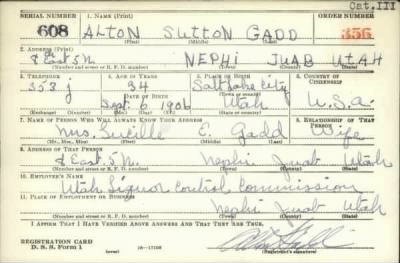 Cat. III
SERIAL NUMBER 1. NAME (Print) ORDER NUMBER
608 ALTON SUTTON GADD 356
(First) (Middle) (Last)
2. ADDRESS (Print)
8 East 5 N. NEPHI JUAB UTAH
(Number and street or R. F. D. number) (Town) (County) (State)
3. TELEPHONE 4. AGE IN YEARS 5. PLACE OF BIRTH 6. COUNTRY OF CITIZENSHIP
353 j 34 Salt Lake City
DATE OF BIRTH (Town or county)
Sept. 6 1906 Utah U.S.A.
(Exchange) (Number) (Mo.) (Day) (Yr.) (State or country)
7. NAME OF PERSON WHO WILL ALWAYS KNOW YOUR ADDRESS 8. RELATIONSHIP OF THAT PERSON
Mrs. Lucille E. Gadd Wife
(Mr., Mrs., Miss) (First) (Middle) (Last)
9. ADDRESS OF THAT PERSON
8 East. 5 N. Nephi Juab Utah
(Number and street or R. F. D. number) (Town) (County) (State)
10. EMPLOYER'S NAME
Utah Liquor Control Commission
11. PLACE OF EMPLOYMENT OR BUSINESS
Nephi Juab Utah
(Number and street or R. F. D. number) (Town) (County) (State)
I AFFIRM THAT I HAVE VERIFIED ABOVE ANSWERS AND THAT THEY ARE TRUE.
REGISTRATION CARD
D. S. S. Form 1
(Registrant's signature)